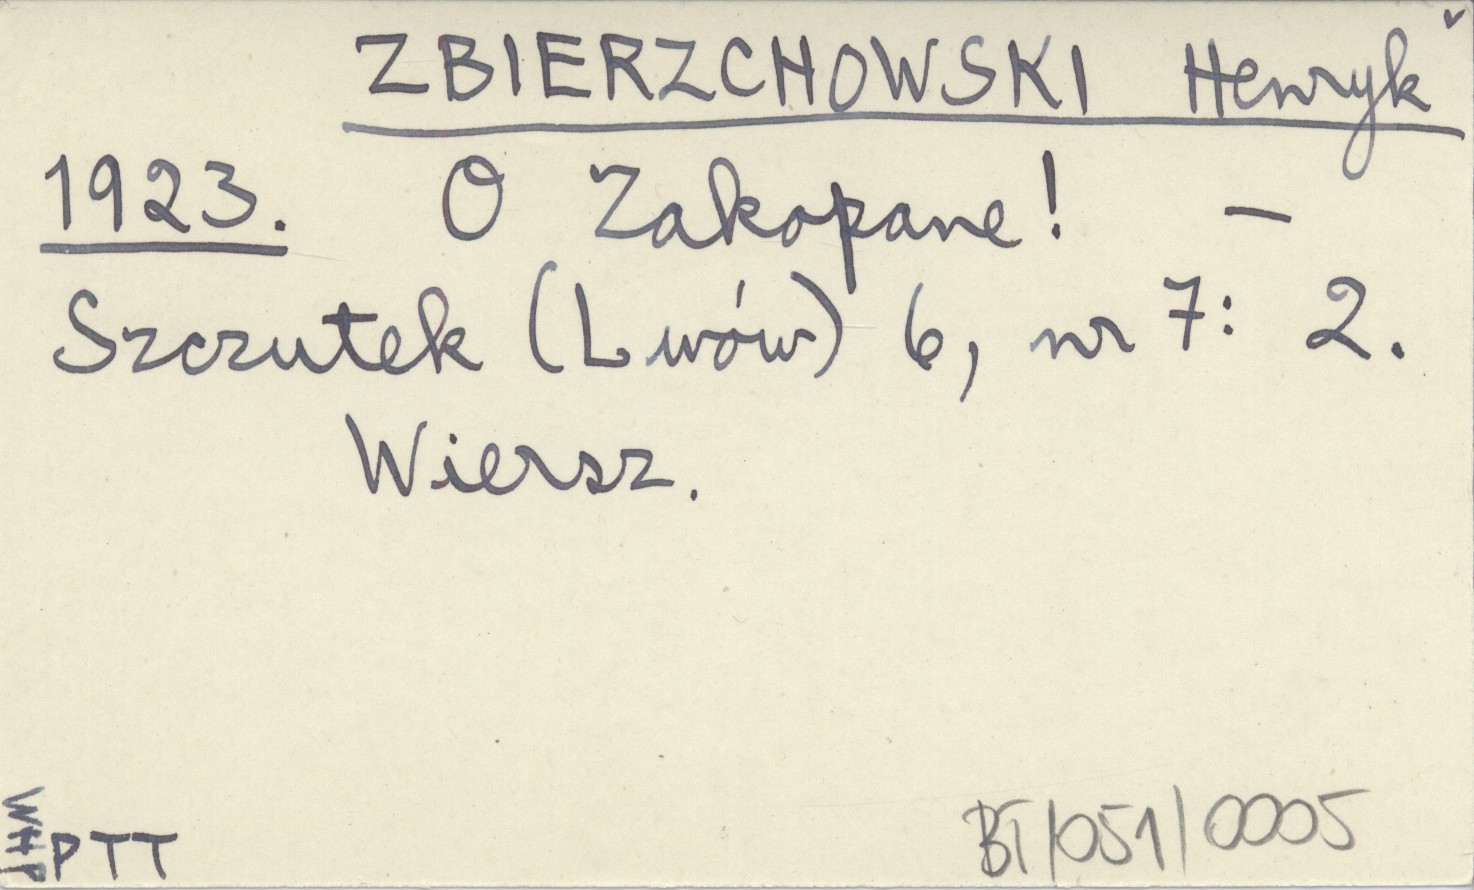 ZBIERZCHOWSKI Henryk ˇ
1923. O Zakopane! –
Szczutek (Lwów) 6, nr 7: 2.
Wiersz.
WHP
PTT
BT/051/0005